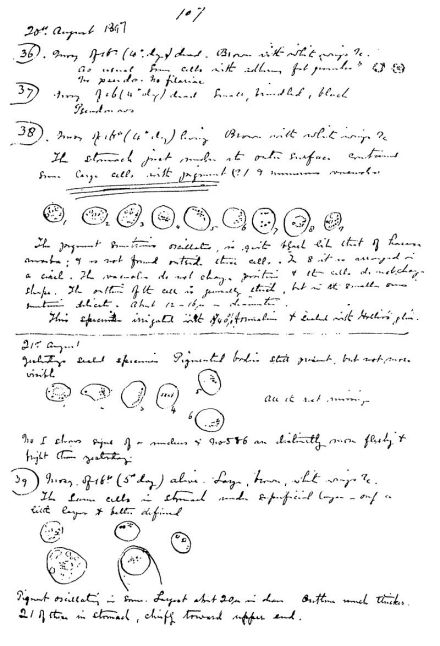 107
20th August 1897
36. Mosq. of 16th (4th day) dead. Brown with white wings &c.
As usual some cells with adhering fat granules
No pseudo. No filariae
37 Mosq of 16 (4th day) dead small, brindled, black
38. Mosq. of 16th (4th day) living Brown with white wings &c
The stomach just under its outer surface contained
some large cells with pigment (?) & numerous vacuoles
1 2 3 4 5 6 7 8 9
The pigment sometimes oscillates, is quite black like that of haem
amoebae; & is not found outside these cells. In 8 it is arranged in
a circle. The vacuoles do not change position & the cells do not change
shape. The outline of the cell is generally thick, but in the smaller ones
sometimes delicate. About 12-16µ in diameter.
This specimen irrigated with 40% formalin & sealed with
21st August
yesterday's sealed specimen Pigmented bodies still present, but not more
visible
3 4 5
6
No 1 shows signs of a nucleus & no 5 & 6 are distinctly more fleshy &
bright than yesterday.
39) Mosq. of 16th (5th day) alive. Large, brown, white wings &c.
The same cells in stomach under superficial layer - only a
little larger & better defined
Pigment oscillating in some. Largest about 20µ in diam. Outline much thicker.
21 of these in stomach, chiefly toward upper end.